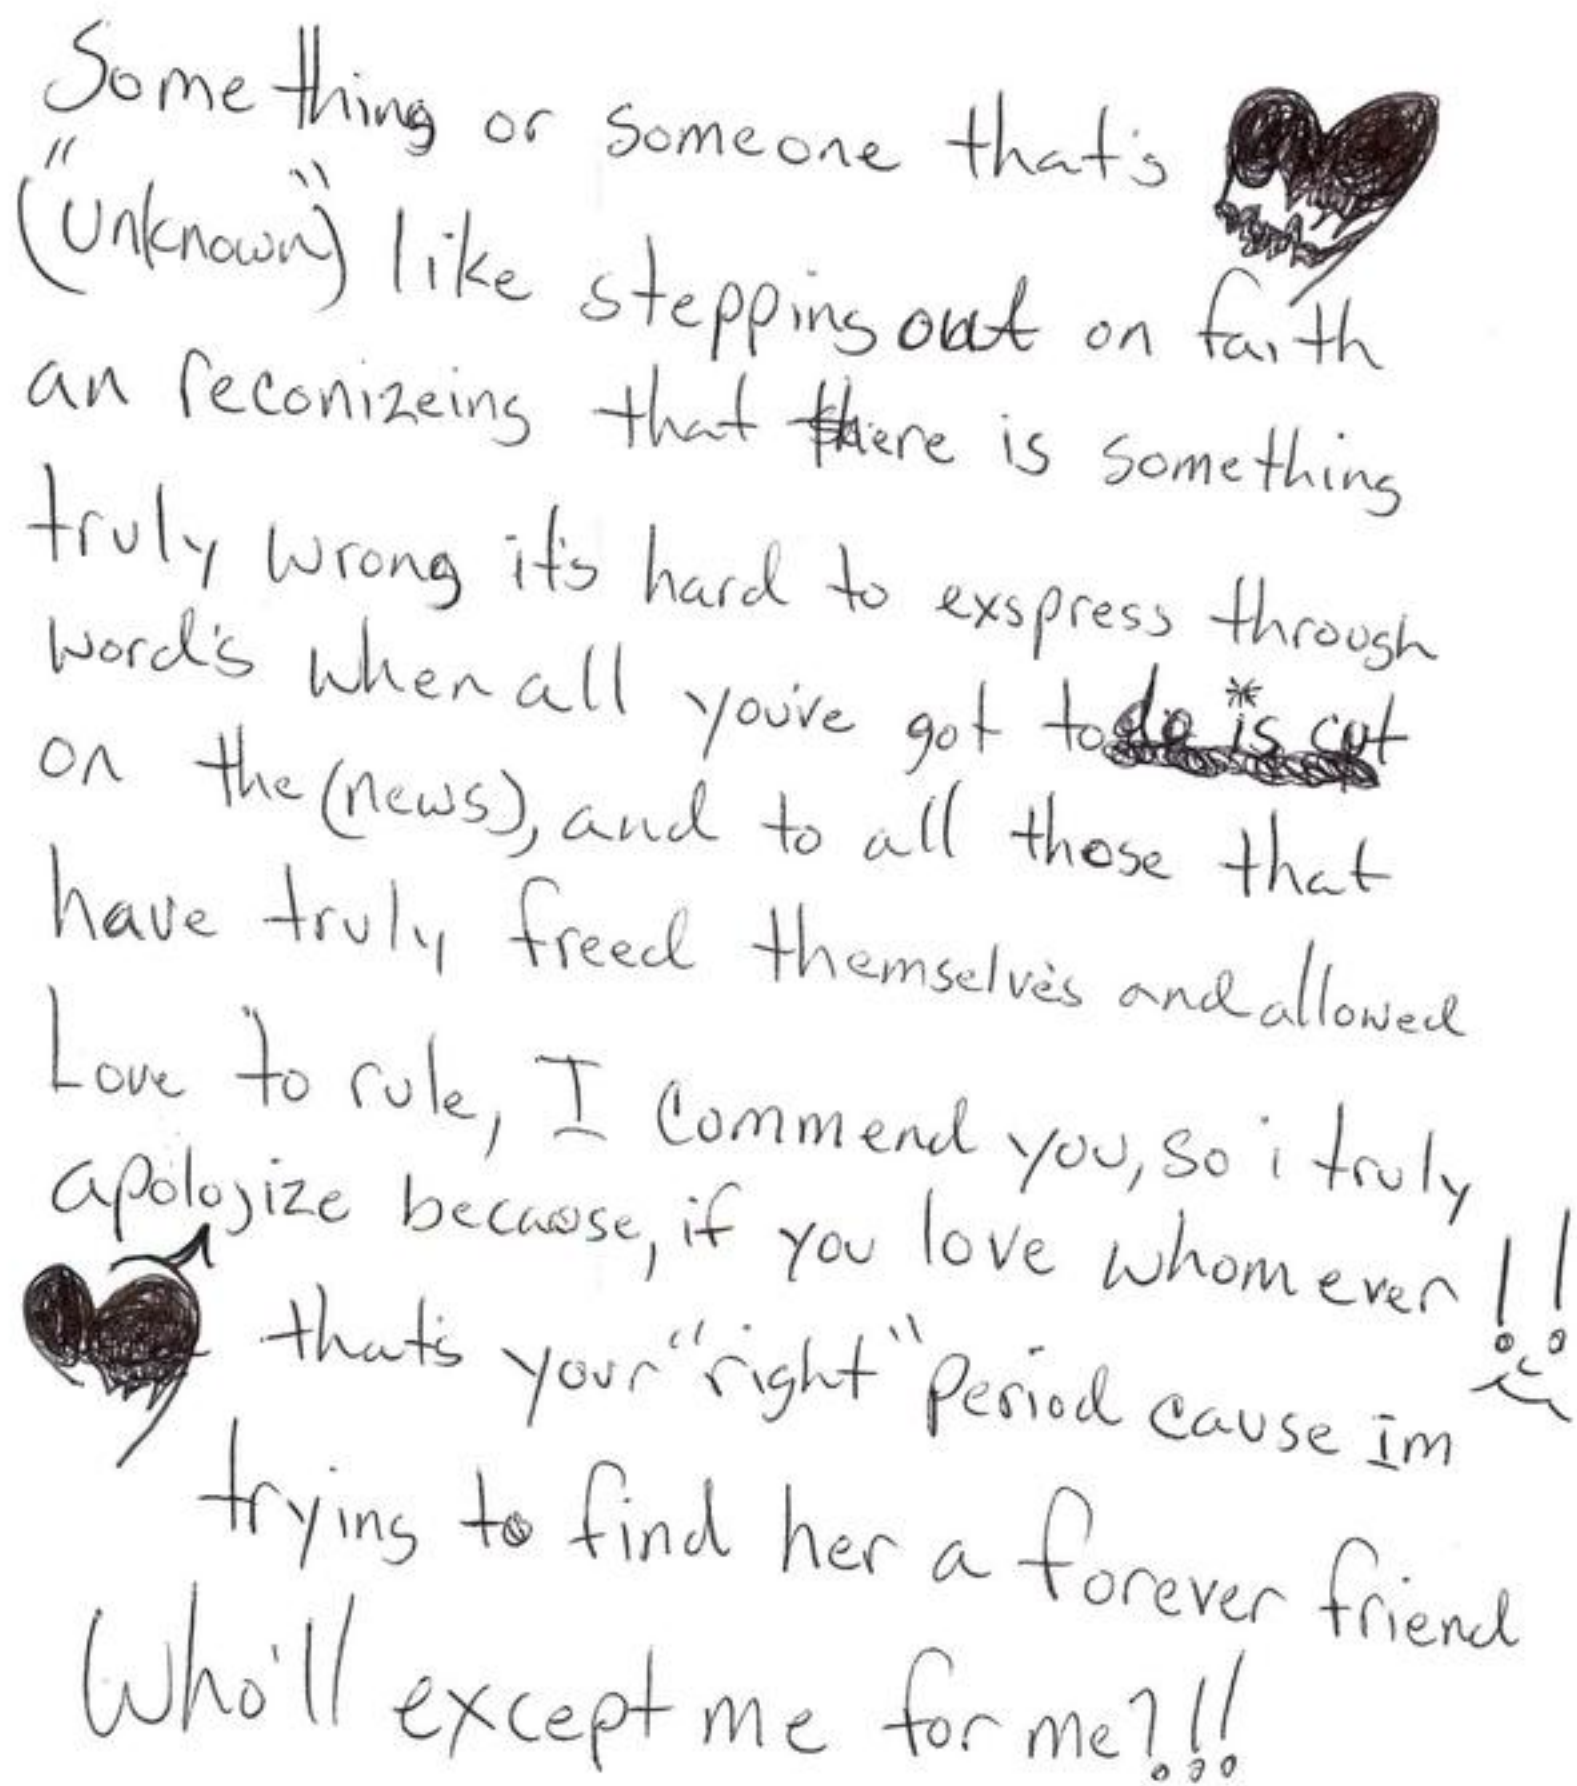 Something or someone that's
("unknown") like stepping out on faith
an reconizeing that there is something
truly wrong it's hard to exspress through
word's when all you've got to do *is cut
on the (news), and to all those that
have truly freed themselve's and allowed
Love to rule, I commend you, so i truly
apologize because, if you love whom ever !!
that's your "right" period cause im
trying to find her a forever friend
Who'll except me for me?!!